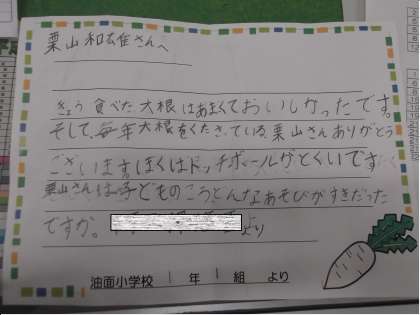 栗山和雄さんへ
きょう食べた大根はあまくておいしかったです。
そして、毎年大根をくださっている栗山さんありがとう
ございます。ぼくはドッチボールがとくいです。
栗山さんは子どものころどんなあそびがすきだった
ですか。 より
油面小学校 1年 1組 より